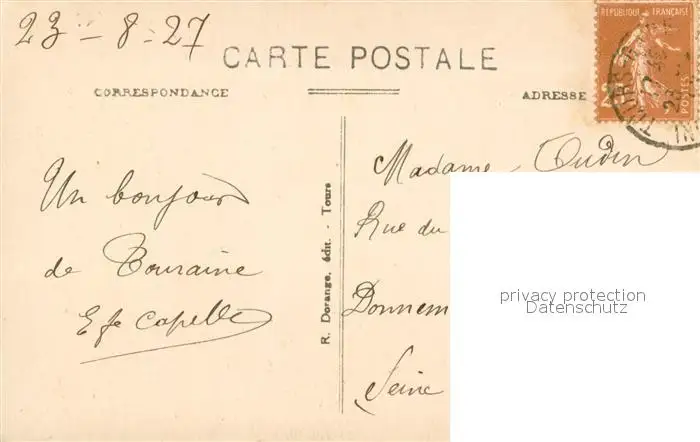 23 - 8 - 27
CARTE POSTALE
CORRESPONDANCE
ADRESSE
RÉPUBLIQUE FRANÇAISE
POSTES
TOURS
Un bonjour
de Touraine
Capelle
R. Dorange, édit. - Tours
Madame Oudin
Rue du
Donnem
Seine
privacy protection
Datenschutz